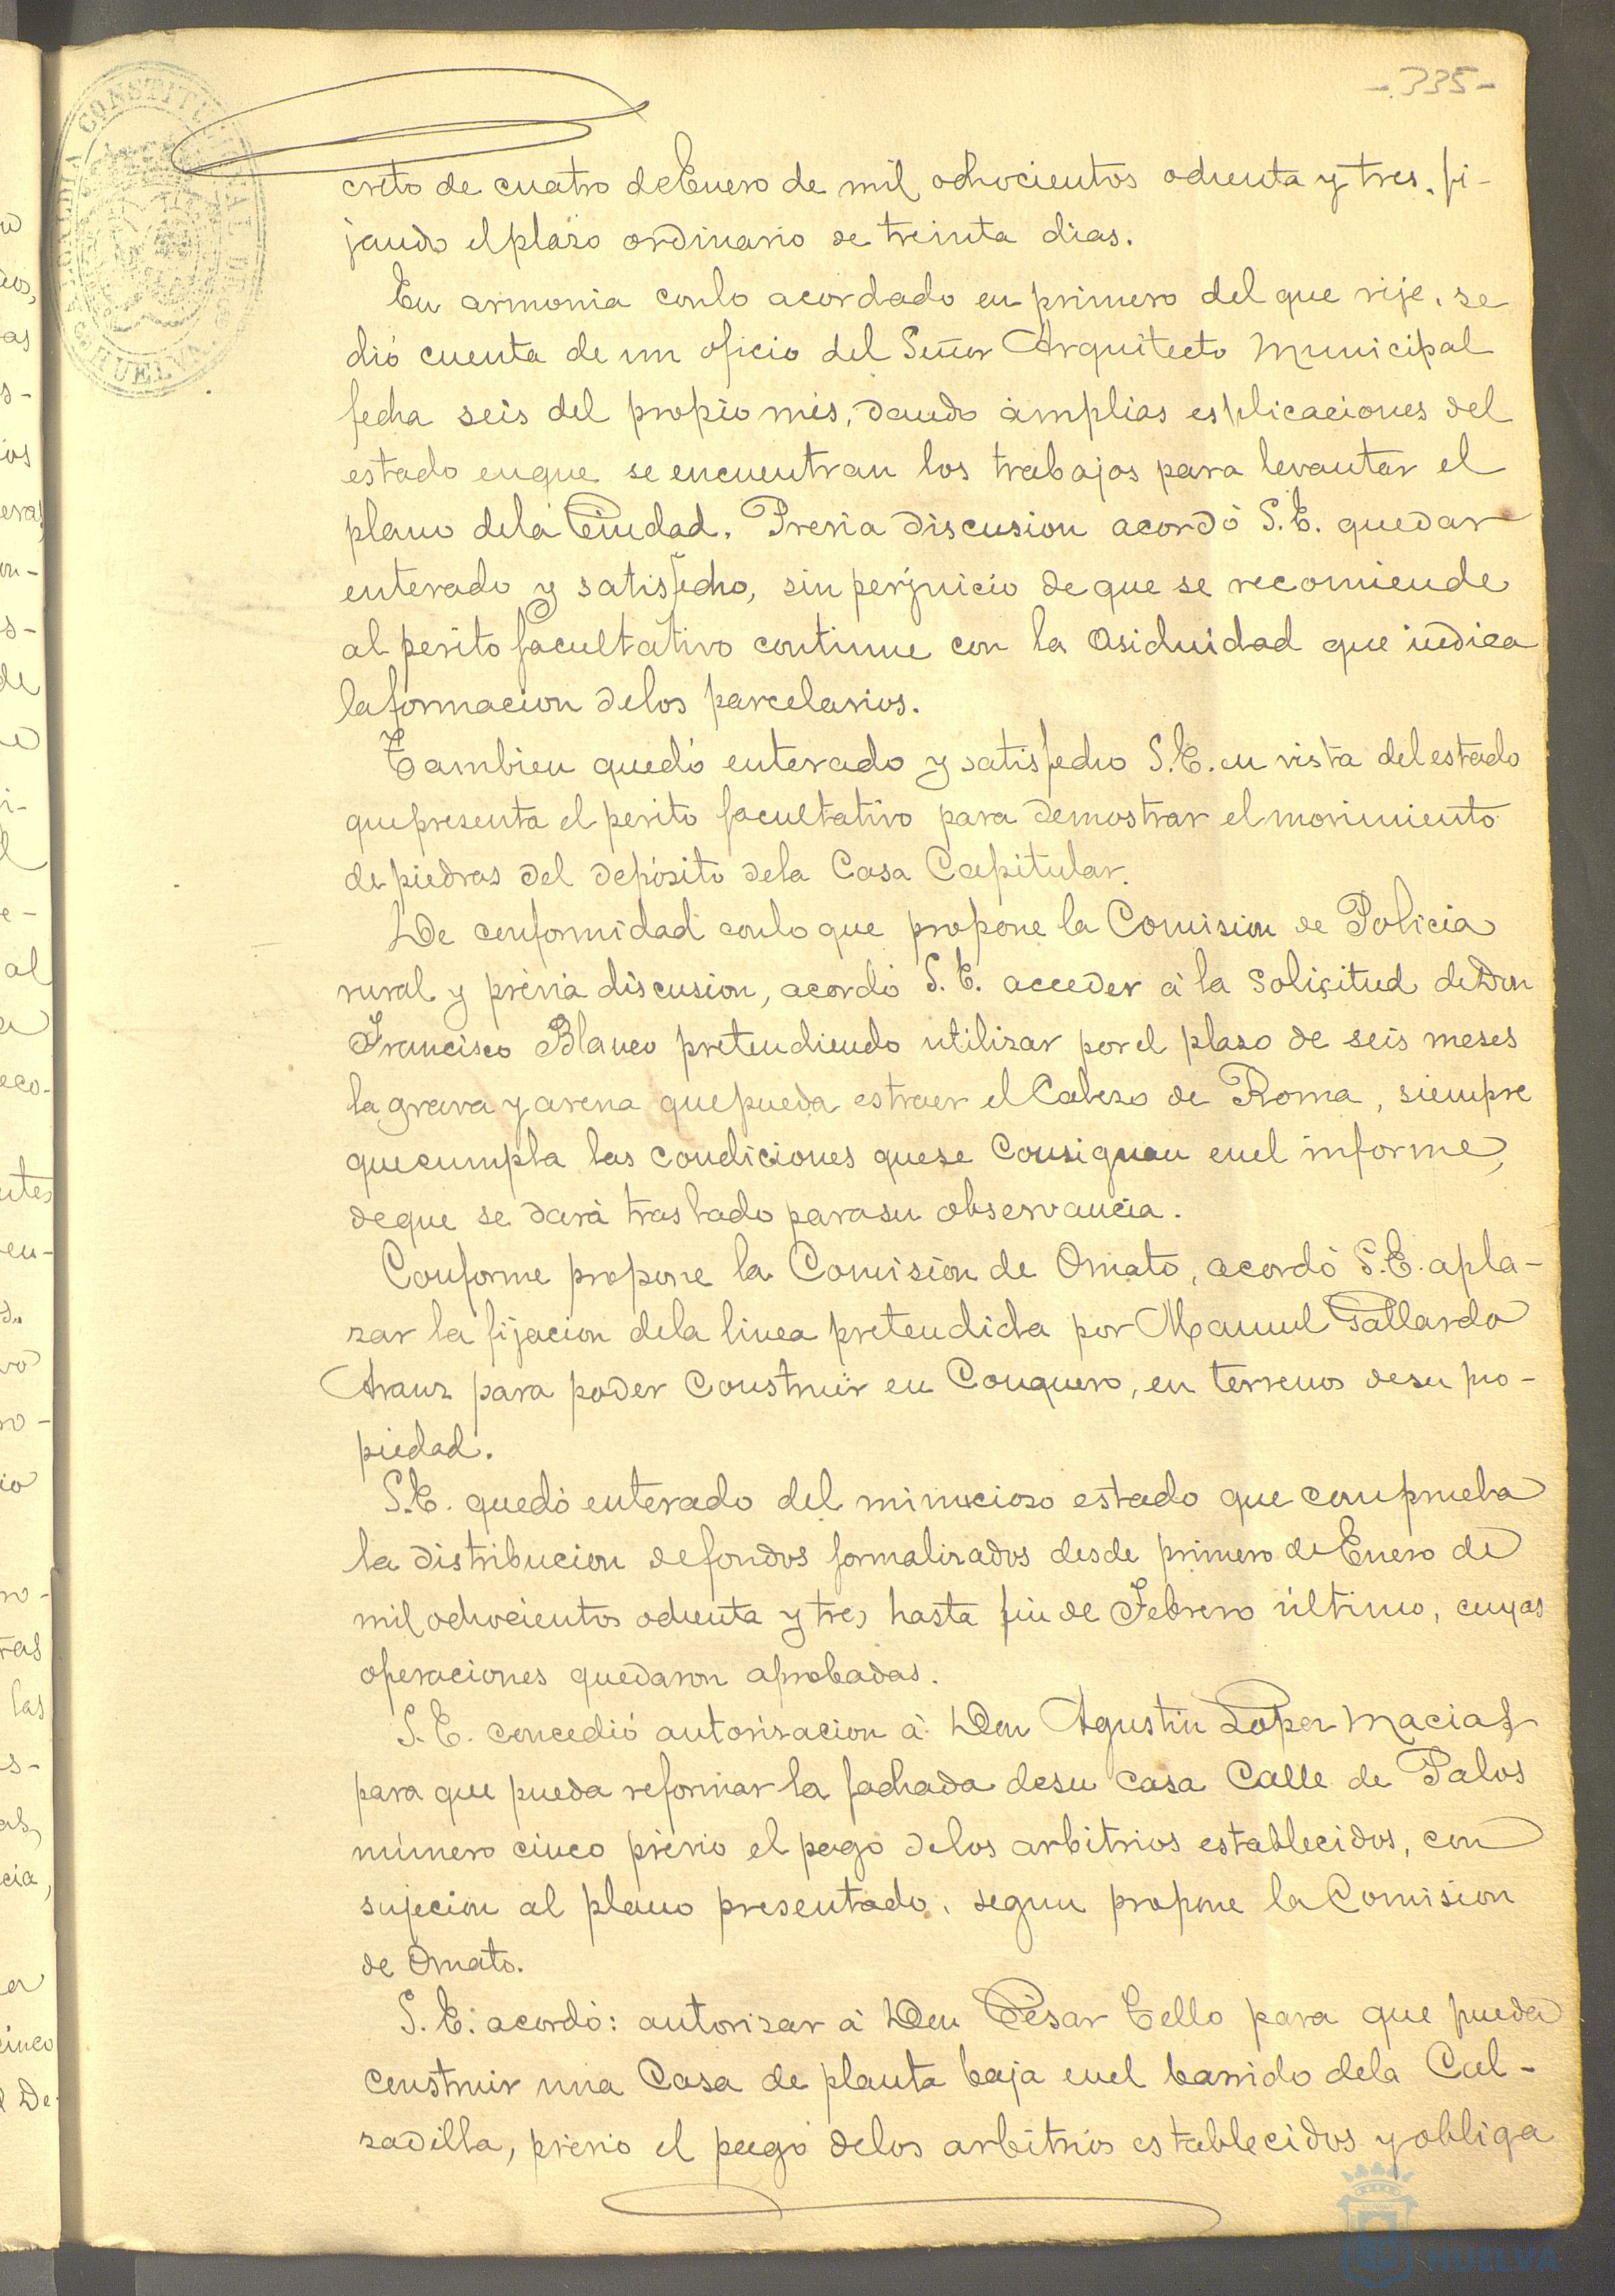 -335-
ALCALDIA CONSTITUCIONAL DE HUELVA
creto de cuatro de Enero de mil ochocientos ochenta y tres, fi-
jando el plazo ordinario de treinta dias.
En armonia con lo acordado en primero del que rije, se
dió cuenta de un oficio del Señor Arquitecto Municipal
fecha seis del propio mes, dando ámplias esplicaciones del
estado en que se encuentran los trabajos para levantar el
plano de la Ciudad. Prévia discusion acordó S.E. quedar
enterado y satisfecho, sin perjuicio de que se recomiende
al perito facultativo continue con la asiduidad que indica
la formacion de los parcelarios.
Tambien quedó enterado y satisfecho S.E. en vista del estado
que presenta el perito facultativo para demostrar el movimiento
de piedras del depósito de la Casa Capitular.
De conformidad con lo que propone la Comision de Policia
rural y prévia discusion, acordó S.E. acceder á la solicitud de Don
Francisco Blanco pretendiendo utilizar por el plazo de seis meses
la grava y arena que pueda estraer el Cabezo de Roma, siempre
que cumpla las condiciones que se consignan en el informe,
de que se dará traslado para su observancia.
Conforme propone la Comision de Ornato, acordó S.E. apla-
zar la fijacion de la linea pretendida por Manuel Gallardo
Aranz para poder construir en Conquero, en terrenos de su pro-
piedad.
S.E. quedó enterado del minucioso estado que comprueba
la distribucion de fondos formalizados desde primero de Enero de
mil ochocientos ochenta y tres hasta fin de Febrero último, cuyas
operaciones quedaron aprobadas.
S.E. concedió autorizacion á Don Agustin Lopez Macias
para que pueda reformar la fachada de su casa Calle de Palos
número cinco prévio el pago de los arbitrios establecidos, con
sujecion al plano presentado, segun propone la Comision
de Ornato.
S.E. acordó: autorizar á Don César Tello para que pueda
construir una Casa de planta baja en el barrido de la Cal-
zadilla, prévio el pago de los arbitrios establecidos y obliga
HUELVA